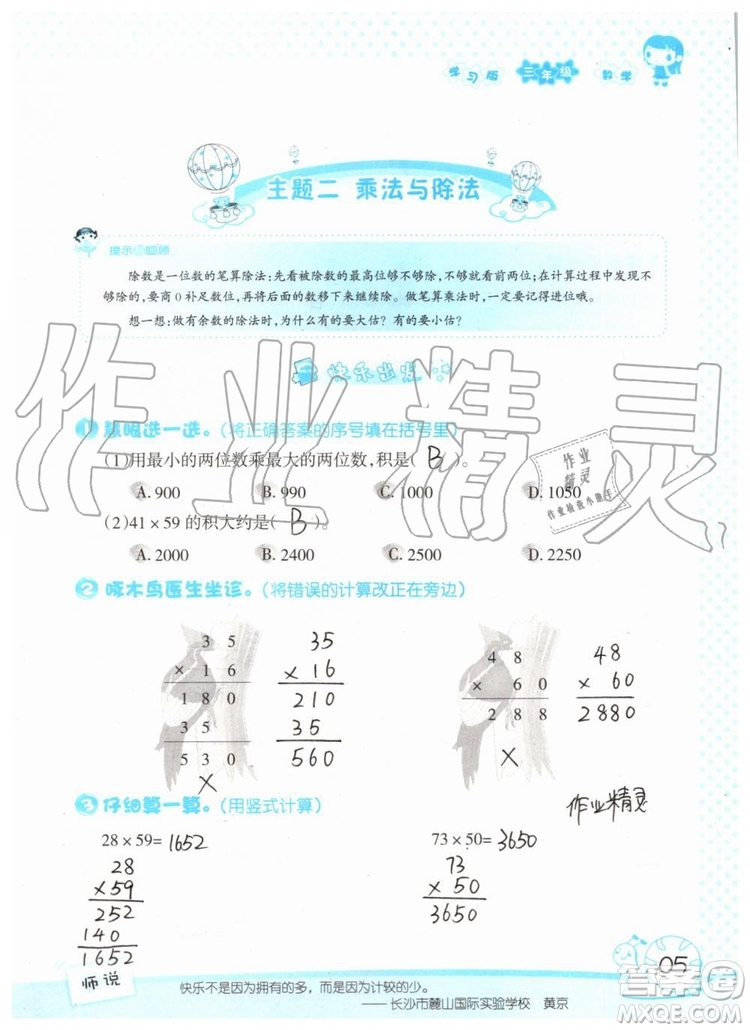 学习版 三年级 数学
主题二 乘法与除法
提示与回顾
除数是一位数的笔算除法:先看被除数的最高位够不够除,不够就看前两位;在计算过程中发现不
够除的,要商0补足数位,再将后面的数移下来继续除。做笔算乘法时,一定要记得进位哦。
想一想:做有余数的除法时,为什么有的要大估?有的要小估?
快乐出发
1 慧眼选一选。(将正确答案的序号填在括号里)
(1)用最小的两位数乘最大的两位数,积是( B )。
A. 900 B. 990 C. 1000 D. 1050
(2)41×59的积大约是( B )。
A. 2000 B. 2400 C. 2500 D. 2250
2 啄木鸟医生坐诊。(将错误的计算改正在旁边)
3 5 35 4 8 48
× 1 6 × 16 × 6 0 × 60
1 8 0 210 2 8 8 2880
3 5 35
5 3 0 560
× ×
3 仔细算一算。(用竖式计算)
作业精灵
28×59=1652 73×50=3650
28 73
×59 × 50
252 3650
140
1652
师说
快乐不是因为拥有的多,而是因为计较的少。
——长沙市麓山国际实验学校 黄京
05
作业精灵
作业
精灵
作业检查小助手
答案圈
MXQE.COM